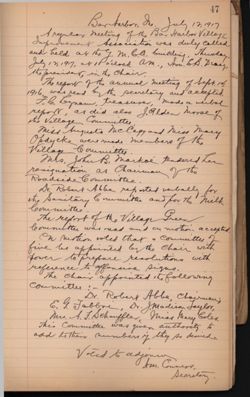 47
Bar Harbor, Me, July 12, 1917
A regular meeting of the Bar Harbor Village
Improvement Association was duly called
and held at the Y. M. C. A. building, Thursday,
July 12, 1917, at 10 o'clock A.M.,
the president, in the Chair.
The report of the annual meeting of Sept. 14
1916 was read by the secretary and accepted
F. C. Lynam, treasurer, made a verbal
report, as did also J. Alden Morse for
the Village Committee.
Miss Augusta McCagg and Miss Mary
Opdycke were made members of the
Village Committee.
Mrs. John B. Markoe tendered her
resignation as Chairman of the
Roadside Committee.
Dr. Robert Abbe, reported verbally for
the Sanitary Committee and for the Milk
Committee.
The report of the Village Green
Committee was read and on motion accepted
On motion voted that a Committee of
five be appointed by the Chair with
power to prepare resolutions with
reference to offensive signs.
The Chair appointed the following
Committee:-
Dr. Robert Abbe, Chairman,
C. G. Fabbri, Dr. J. Madison Taylor,
Mrs. A. F. Schauffler, Miss Mary Coles
This Committee was given authority to
add to their numbers if they so desired.
Voted to adjourn
Secretary.